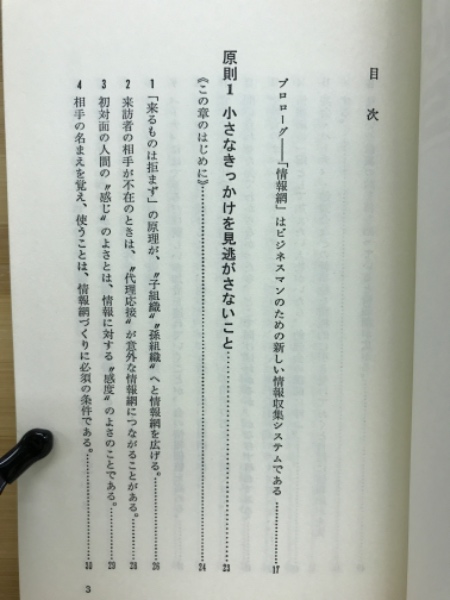 目次
プロローグ──「情報網」はビジネスマンのための新しい情報収集システムである………17
原則1 小さなきっかけを見逃がさないこと………23
《この章のはじめに》………24
1 「来るものは拒まず」の原理が、〝子組織〟〝孫組織〟へと情報網を広げる。………26
2 来訪者の相手が不在のときは、〝代理応接〟が意外な情報網につながることがある。………28
3 初対面の人間の〝感じ〟のよさとは、情報に対する〝感度〟のよさのことである。………29
4 相手の名まえを覚え、使うことは、情報網づくりに必須の条件である。………
3